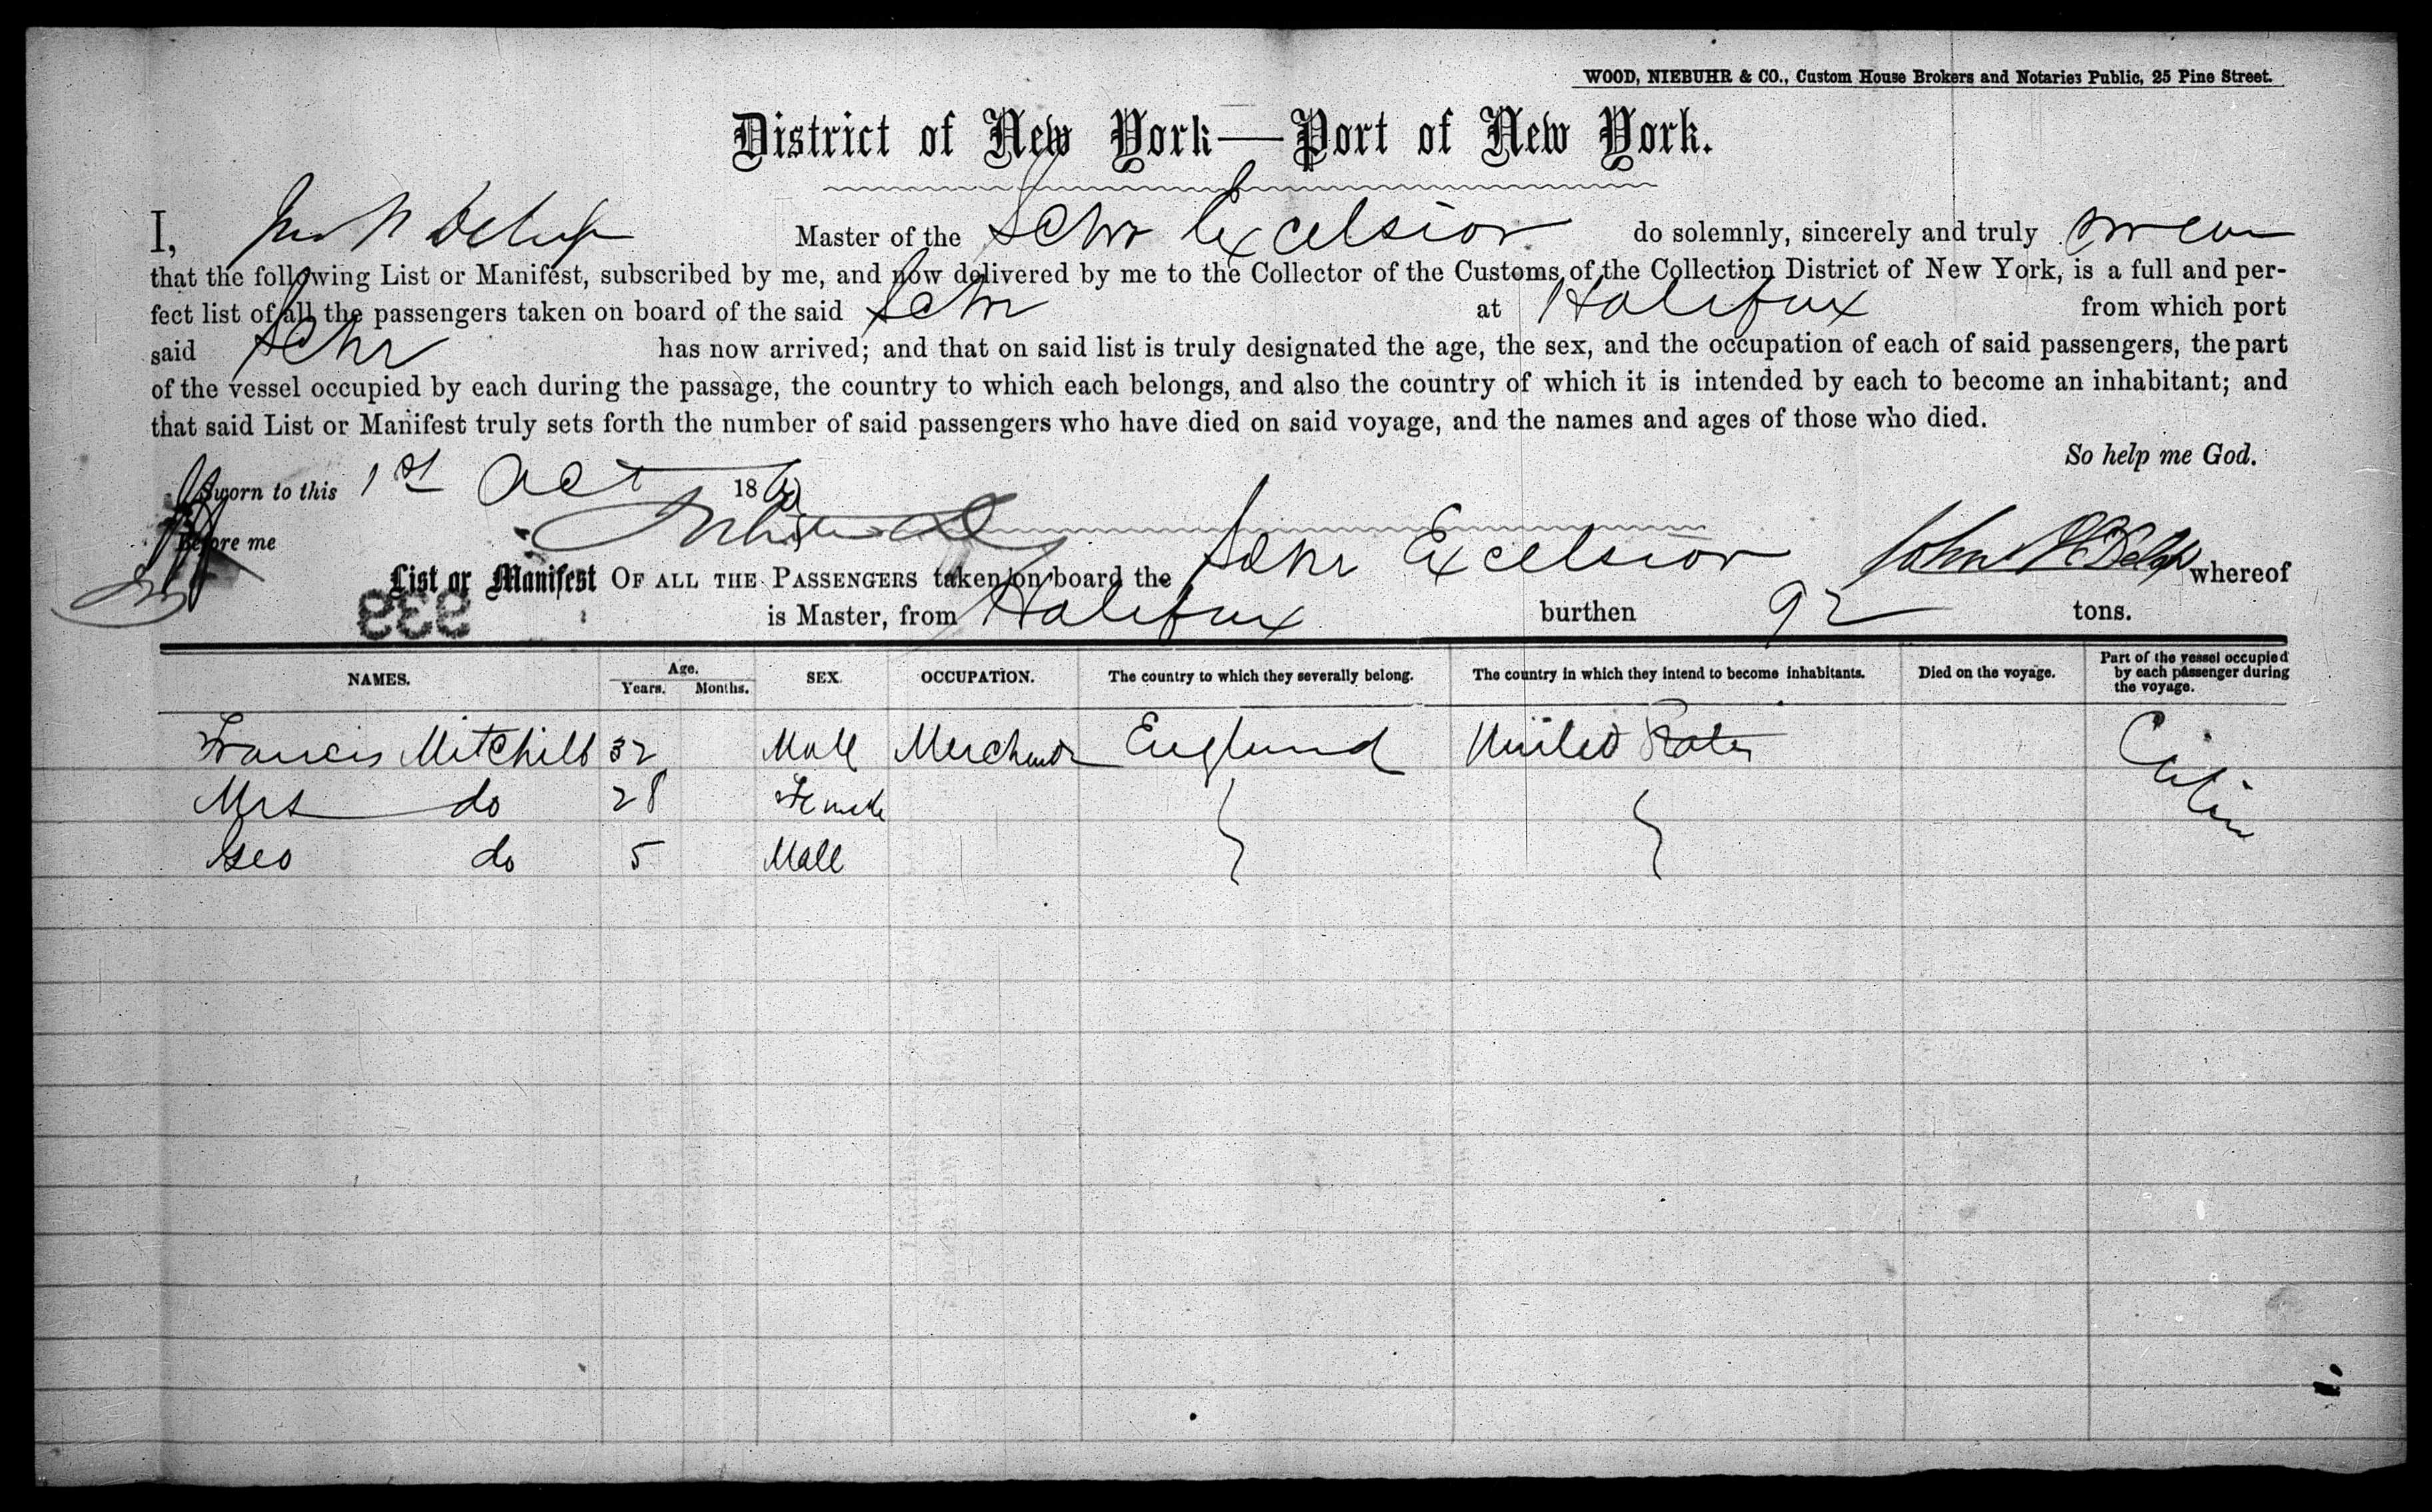 WOOD, NIEBUHR & CO., Custom House Brokers and Notaries Public, 25 Pine Street.
District of New York—Port of New York.
I, Jno N Delap Master of the Schr Excelsior do solemnly, sincerely and truly swear
that the following List or Manifest, subscribed by me, and now delivered by me to the Collector of the Customs of the Collection District of New York, is a full and per-
fect list of all the passengers taken on board of the said Schr at Halifax from which port
said Schr has now arrived; and that on said list is truly designated the age, the sex, and the occupation of each of said passengers, the part
of the vessel occupied by each during the passage, the country to which each belongs, and also the country of which it is intended by each to become an inhabitant; and
that said List or Manifest truly sets forth the number of said passengers who have died on said voyage, and the names and ages of those who died.
So help me God.
Sworn to this 1st Oct 186
Before me
List or Manifest OF ALL THE PASSENGERS taken on board the Schr Excelsior John Delap whereof
is Master, from Halifax burthen 92 tons.
939
NAMES. Age. Years. Months. SEX. OCCUPATION. The country to which they severally belong. The country in which they intend to become inhabitants. Died on the voyage. Part of the vessel occupied by each passenger during the voyage.
Francis Mitchell 32 Male Merchant England United States Cabin
Mrs do 28 Female
Geo do 5 Male